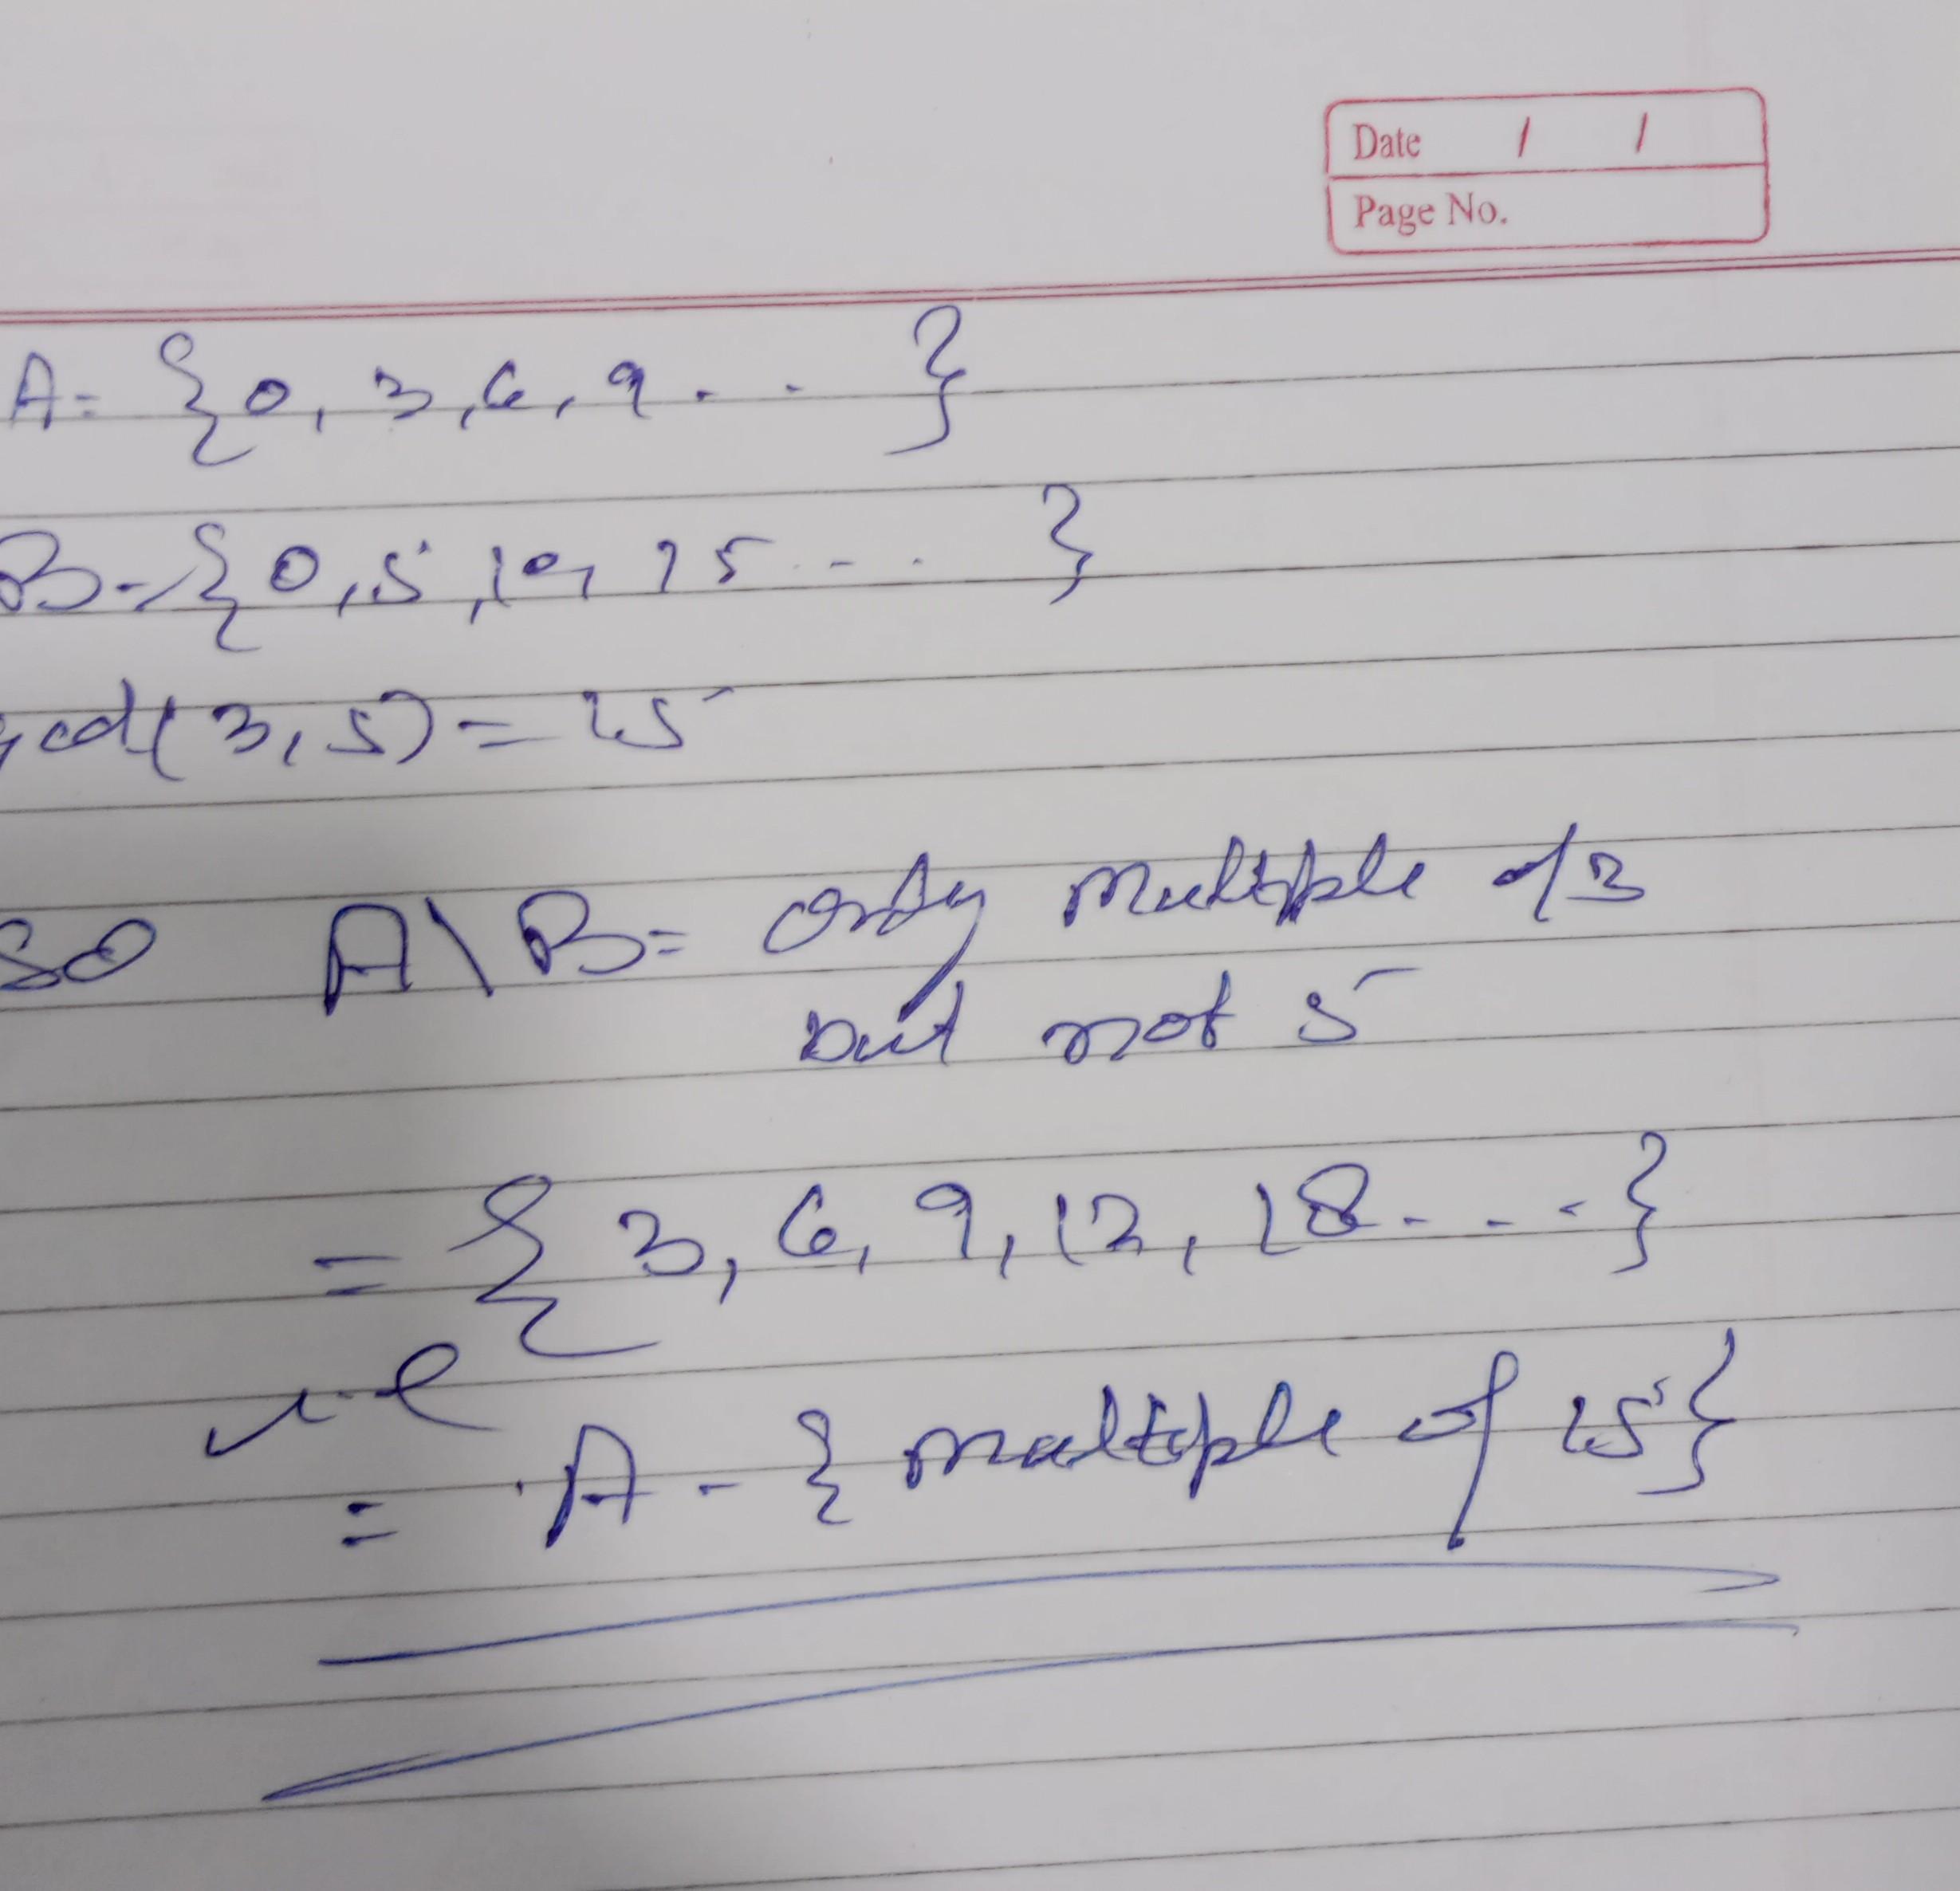 Date / /
Page No.
A= {0, 3, 6, 9 . .. }
B= {0, 5, 10, 15 ... . }
gcd(3, 5) = 15
so A\B= only multiple of 3
but not 5
= {3, 6, 9, 12, 18 . . . . }
i.e
= A - {multiple of 15}